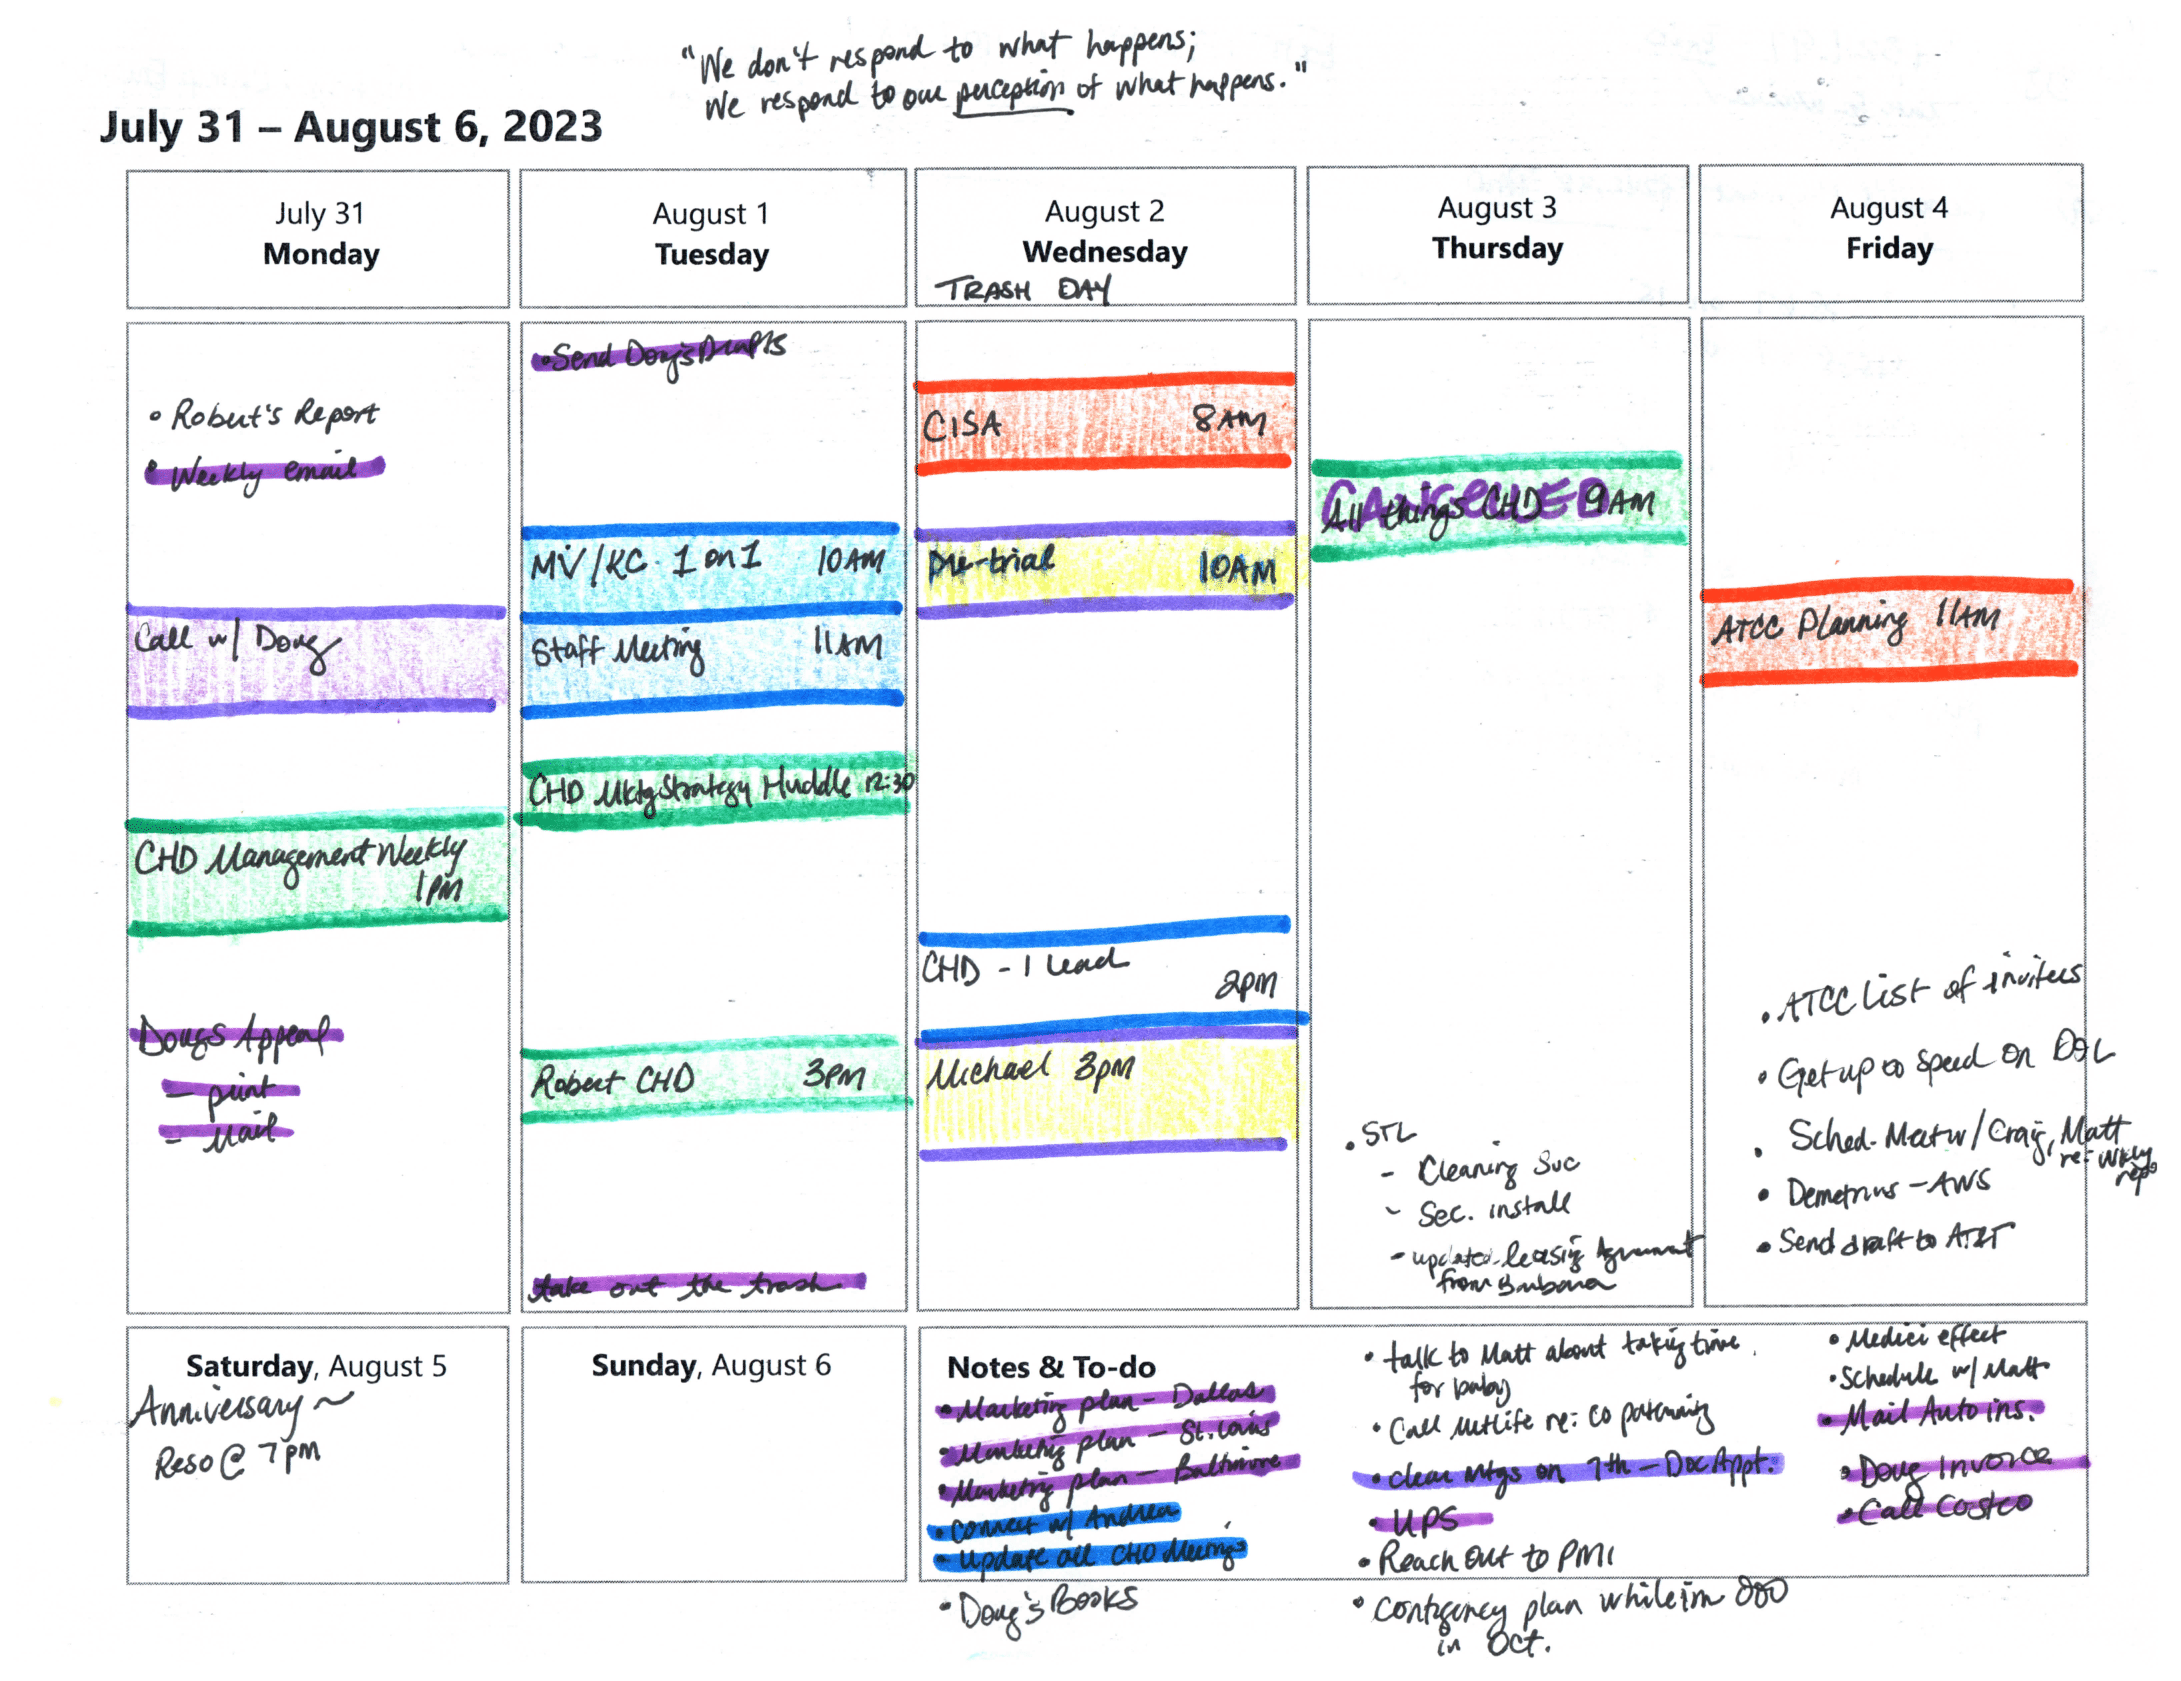 "We don't respond to what happens;
We respond to our perception of what happens."
July 31 – August 6, 2023
July 31
Monday
August 1
Tuesday
August 2
Wednesday
TRASH DAY
August 3
Thursday
August 4
Friday
• Robert's Report
• Weekly email
Call w/ Doug
CHD Management Weekly
1PM
Doug's Appeal
- print
- Mail
• Send Doug's Drafts
MV/KC 1 on 1 10AM
Staff Meeting 11AM
CHD Mktg Strategy Huddle 12:30
Robert CHD 3PM
take out the trash
CISA 8AM
Pre-trial 10AM
CHD - 1 Lead
2pm
Michael 3pm
CANCELLED
All things CHD 9AM
• STL
- Cleaning Svc
- Sec. install
- updated leasing Agreement
from
ATCC Planning 11AM
• ATCC List of invitees
• Get up to speed on
• Sched. Meet w/ Craig, Matt
re: wkly
rep
• Demetrius - AWS
• Send draft to AT&T
Saturday, August 5
Anniversary ~
Reso @ 7pm
Sunday, August 6
Notes & To-do
• Marketing plan - Dallas
• Marketing plan - St. Louis
• Marketing plan - Baltimore
• Connect w/ Andrea
• Update all CHD Meetings
• Doug's Books
• talk to Matt about taking time
for baby
• Call metlife re:
• clear mtgs on 7th - Doc Appt.
• UPS
• Reach Out to PMI
• Contigency plan while im OOO
in Oct.
• Medici effect
• Schedule w/ Matt
• Mail Auto ins.
• Doug Invoice
• Call Costco